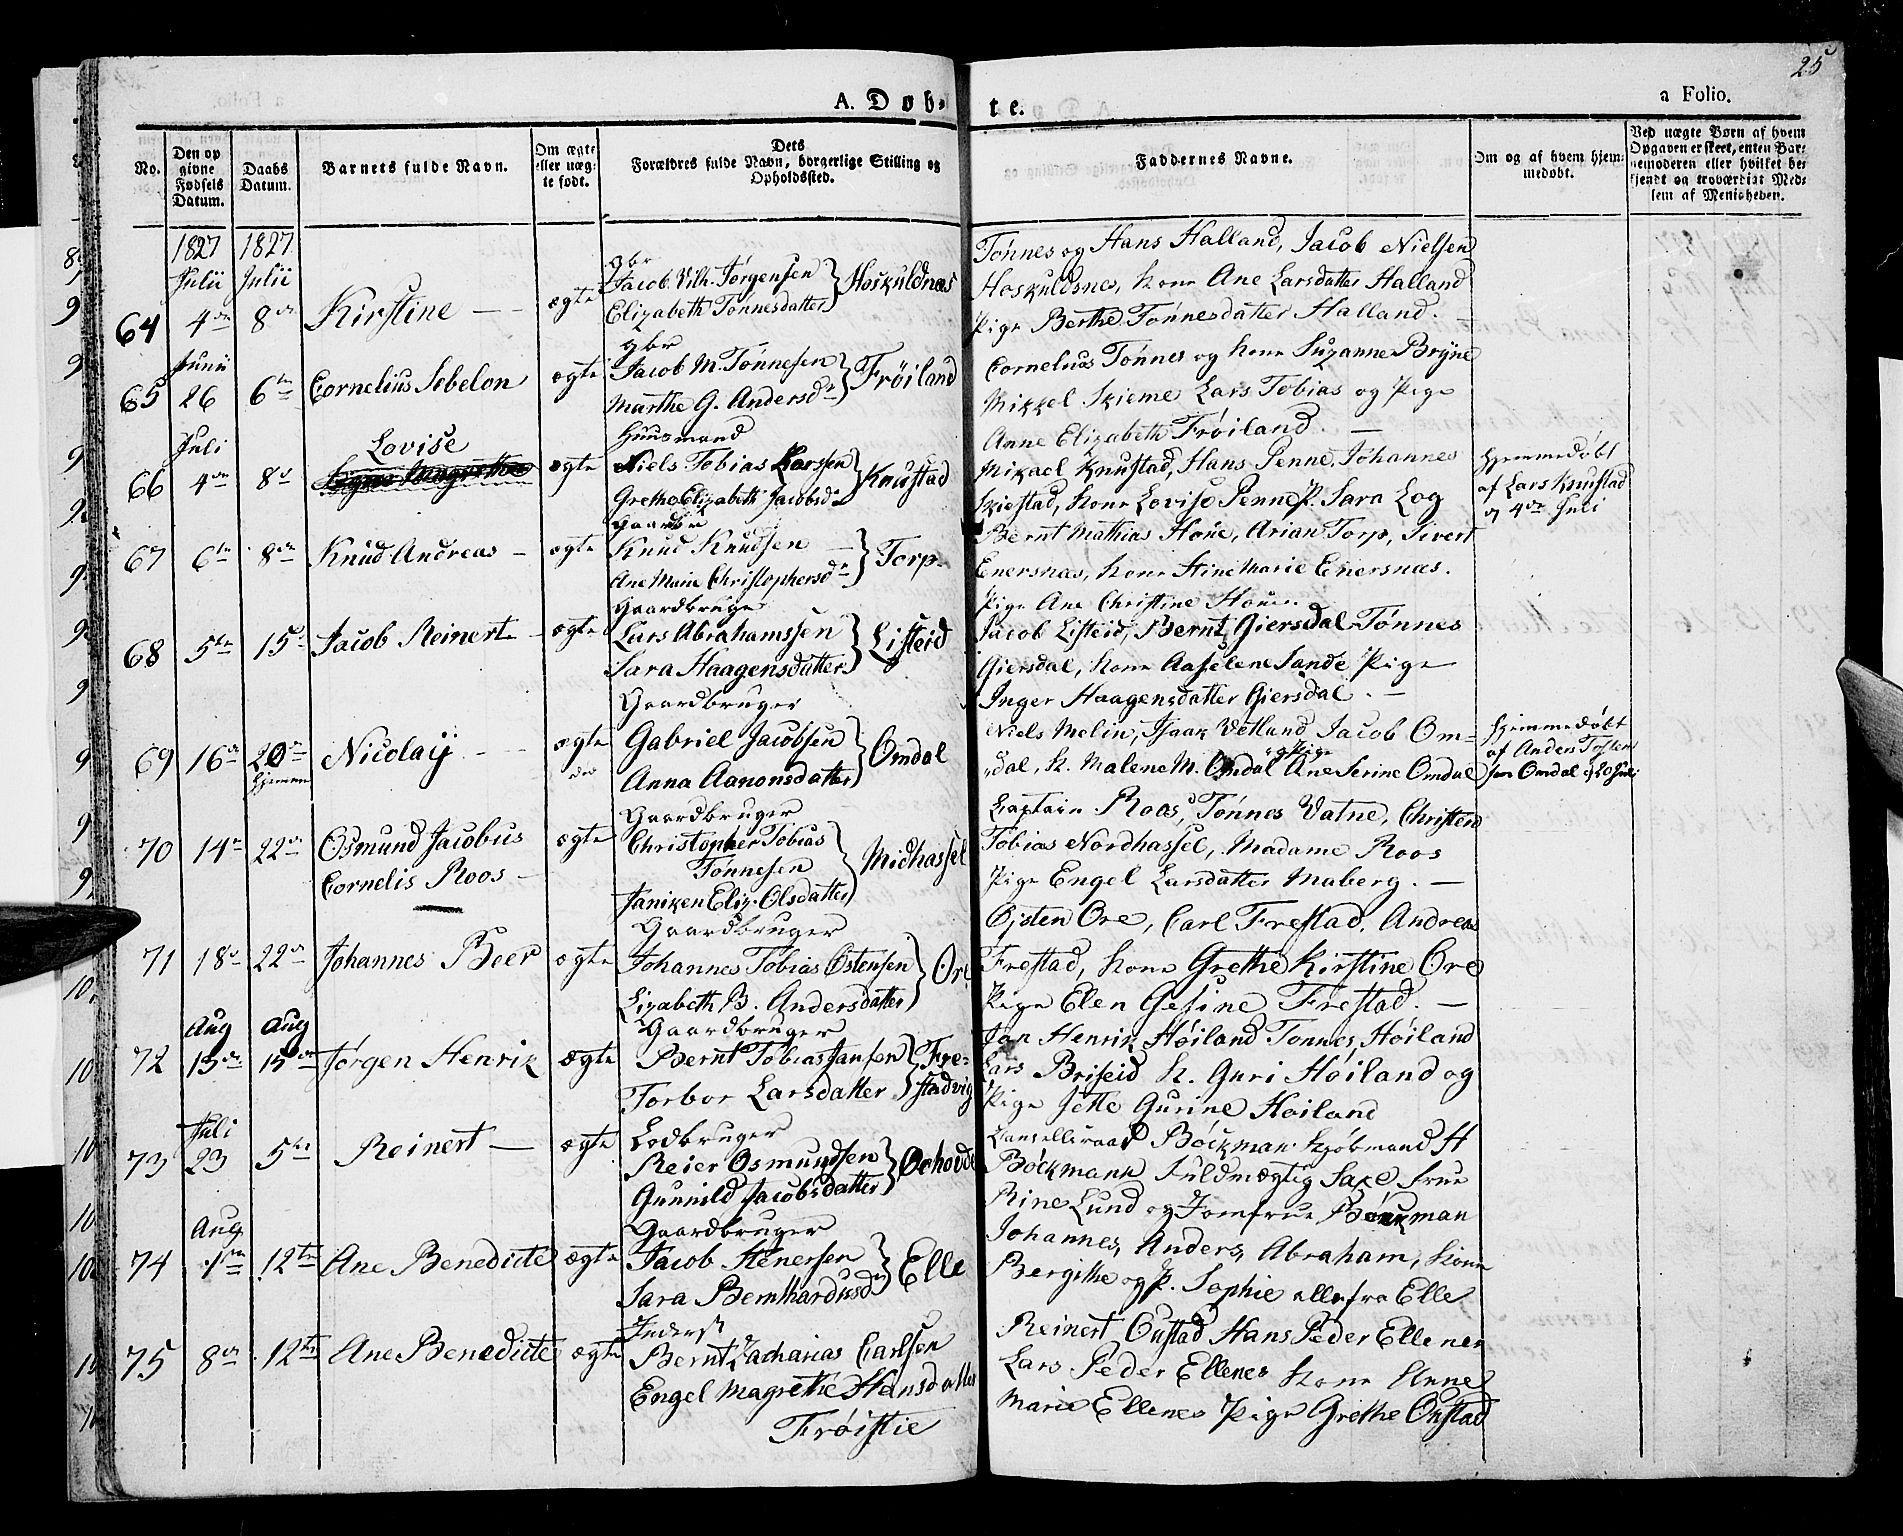 25
A. Døb-
te.
a Folio.
No.
Den op
givne
Fødsels
Datum.
Daabs
Datum.
Barnets fulde Navn.
Om ægte
eller uæg-
te født.
Dets
Forældres fulde Navn, borgerlige Stilling og
Opholdssted.
Faddernes Navne.
Om og af hvem hjem-
medøbt.
Ved uægte Børn af hvem
Opgaven er skeet, enten Bar-
nemoderen eller hvilket be-
kjendt og troværdigt Med-
lem af Menigheden.
1827 1827
Julii Julii
64 4de 8de Kirstine — ægte
gbr
Jacob Vilh. Jørgensen
Elizabeth Tønnesdatter } Hoskuldnæs
Tønnes og Hans Halland, Jacob Nielsen
Hoskuldsnes, Kone Ane Larsdatter Halland
Pige Berthe Tønnesdatter Halland. —
Junii
65 26 6te Cornelius Sebelon ægte
gbr
Jacob M. Tønnesen
Marthe G. Andersdr } Frøiland
Cornelius Tønnes og Kone Suzanne Bryne
Mikkel Skieme Lars Tobias og Pige
Anne Elizabeth Frøiland. —
Juli
66 4de 8d Lovise ægte
Huusmand
Niels Tobias Larssen
Grethe Elizabeth Jacobsdr } Knustad
Mikael Knustad, Hans Penne, Johannes
Skiestad, Kone Lovise Penne P. Sara Log
Hjemmedøbt
af Lars Knustad
og 4de Juli
67 6te 8de Knud Andreas — ægte
Gaardbr
Knud Knudsen —
Ane Marie Christophersdr } Torp
Bernt Mathias Houe, Arian Torp, Sivert
Enersnæs, Kone Stine Marie Enersnæs.
Pige Ane Christine Houe.
68 5te 15d Jacob Reinert — ægte
Gaardbruger
Lars Abrahamssen
Sara Haagensdatter } Listeid
Jacob Listeid, Bernt Giersdal Tønnes
Giersdal, Kone Aaselene Sande Pige
Inger Haagensdatter Giersdal. —
69 16de 20de Hjemme Nicolaij — ægte
Gaardbruger
Gabriel Jacobsen
Anna Aanonsdatter } Omdal
Niels Melin, Isaak Vetland Jacob Om-
dal, K. Malene M. Omdal og Pige Ane Serine Omdal
Hjemmedøbt
af Anders Tosten
sen Omdal d 20 Juli
70 14de 22de Osmund Jacobus
Cornelis Roos — ægte
Gaardbruger
Christopher Tobias
Tønnesen
Janiken Eliz. Olsdatter } Midhassel
Captain Roos, Tønnes Vatne, Christen
Tobias Nordhassel, Madame Roos
Pige Engel Larsdatter Maberg. —
71 18de 22de Johannes Beer ægte
Gaardbruger
Johannes Tobias Østensen
Lizabeth B. Andersdatter } Ore
Øjsten Ore, Carl Frestad, Andreas
Frestad, Kone Grethe Kirstine Ore
Pige Elen Gesine Frestad. —
Aug Aug
72 13de 15de Jørgen Henrik ægte
Gaardbruger
Bernt Tobias Jansen
Torbor Larsdatter } Fre-
stadvig
Jan Henrik Høiland Tønnes Høiland
Lars Briseid K. Guri Høiland og
Pige Jette Gurine Høiland
Juli
73 23 5te Reinert — ægte
Lodbruger
Reier Osmundsen
Gunnild Jacobsdatter } Ørehodde
Cancelliraad Bøckman Kjøbmand H
Bøckmann Fuldmægtig Saxe Frue
Rine Lund og Jomfrue Bøckman
Aug
74 1ste 12te Ane Benedicte ægte
Gaardbruger
Jacob Stenersen
Sara Bernthardusdr } Elle
Johannes, Anders, Abraham, Kone
Bergithe og P. Sophie alle fra Elle
75 8de 12te Ane Benedicte ægte
Inderst
Bernt Zacharias Carlsen
Engel Magrethe Hansdatter
Frøistie
Reinert Ougstad Hans Peder Ellenes
Lars Peder Ellenes Kone Anne
Marie Ellenes Pige Grethe Ougstad